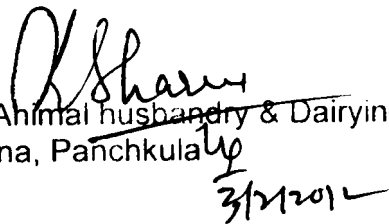 K Sharma
Animal husbandry & Dairyin
na, Panchkula
3/2/2012